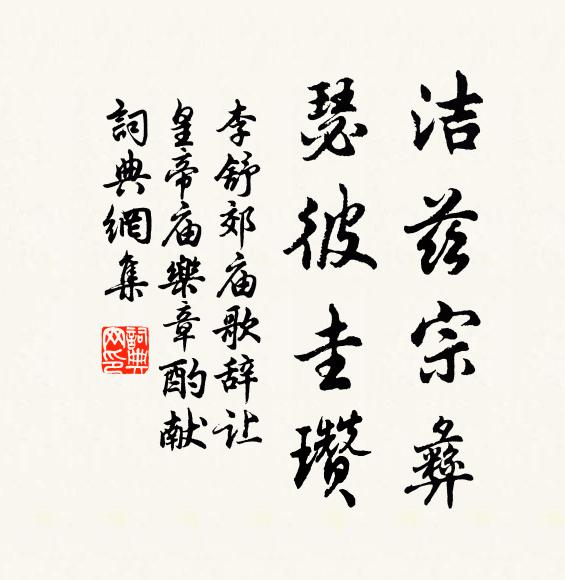 洁兹宗彝
瑟彼圭瓒
李舒郊庙歌辞让
皇帝庙樂章酌献
詞典網集
詞典
网印